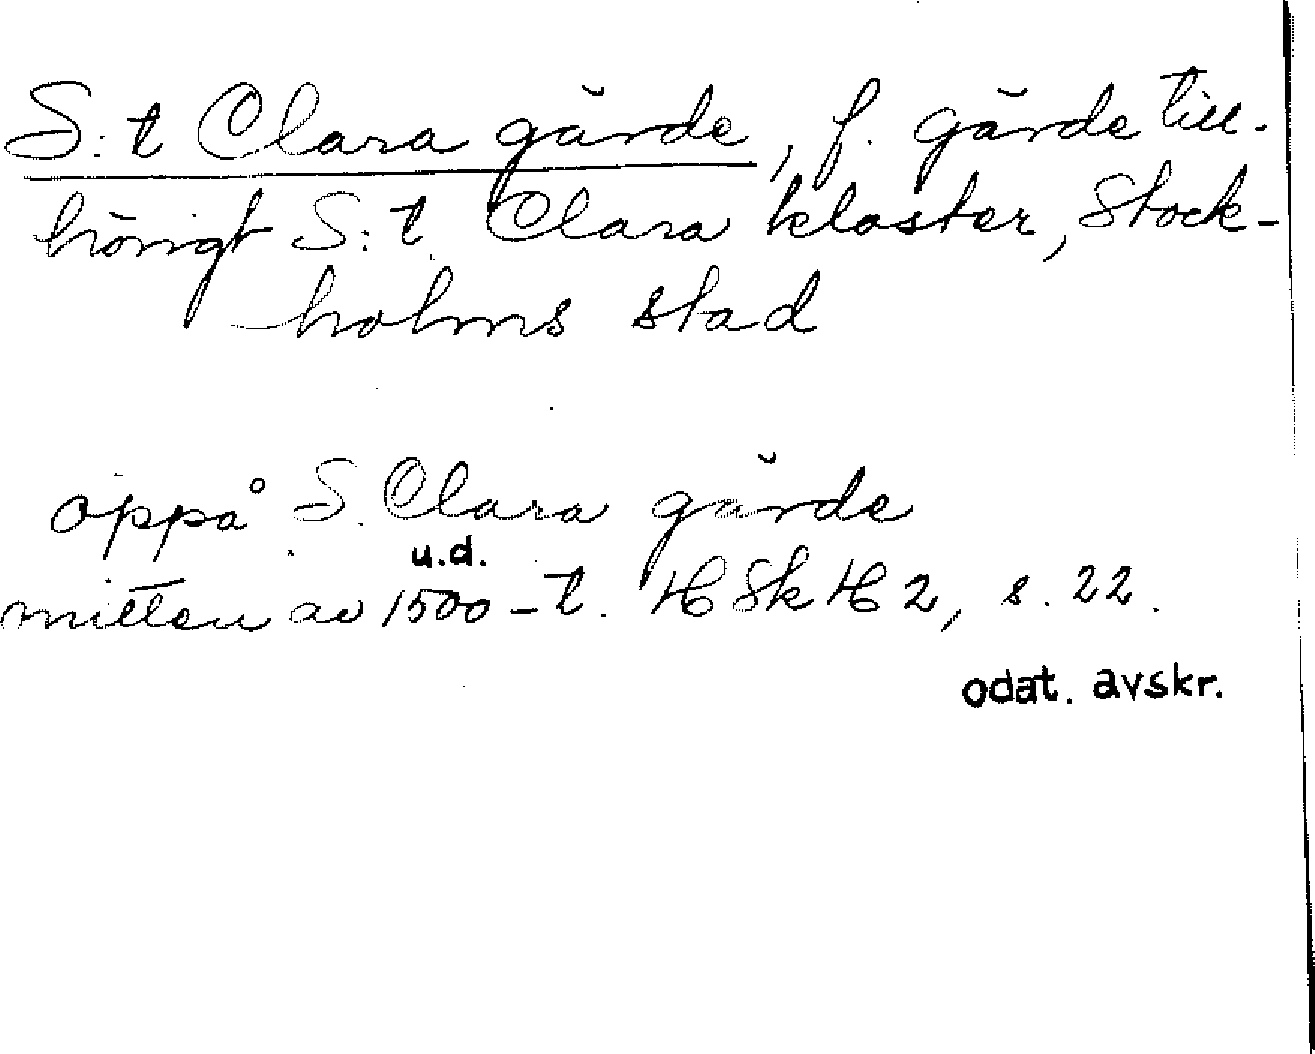 S:t Clara gärde, f. gärde till-
hörigt S:t Clara kloster, Stock-
holms stad
oppå S. Clara gärde
u.d.
mitten av 1500-t. HSkH 2, s. 22.
odat. avskr.